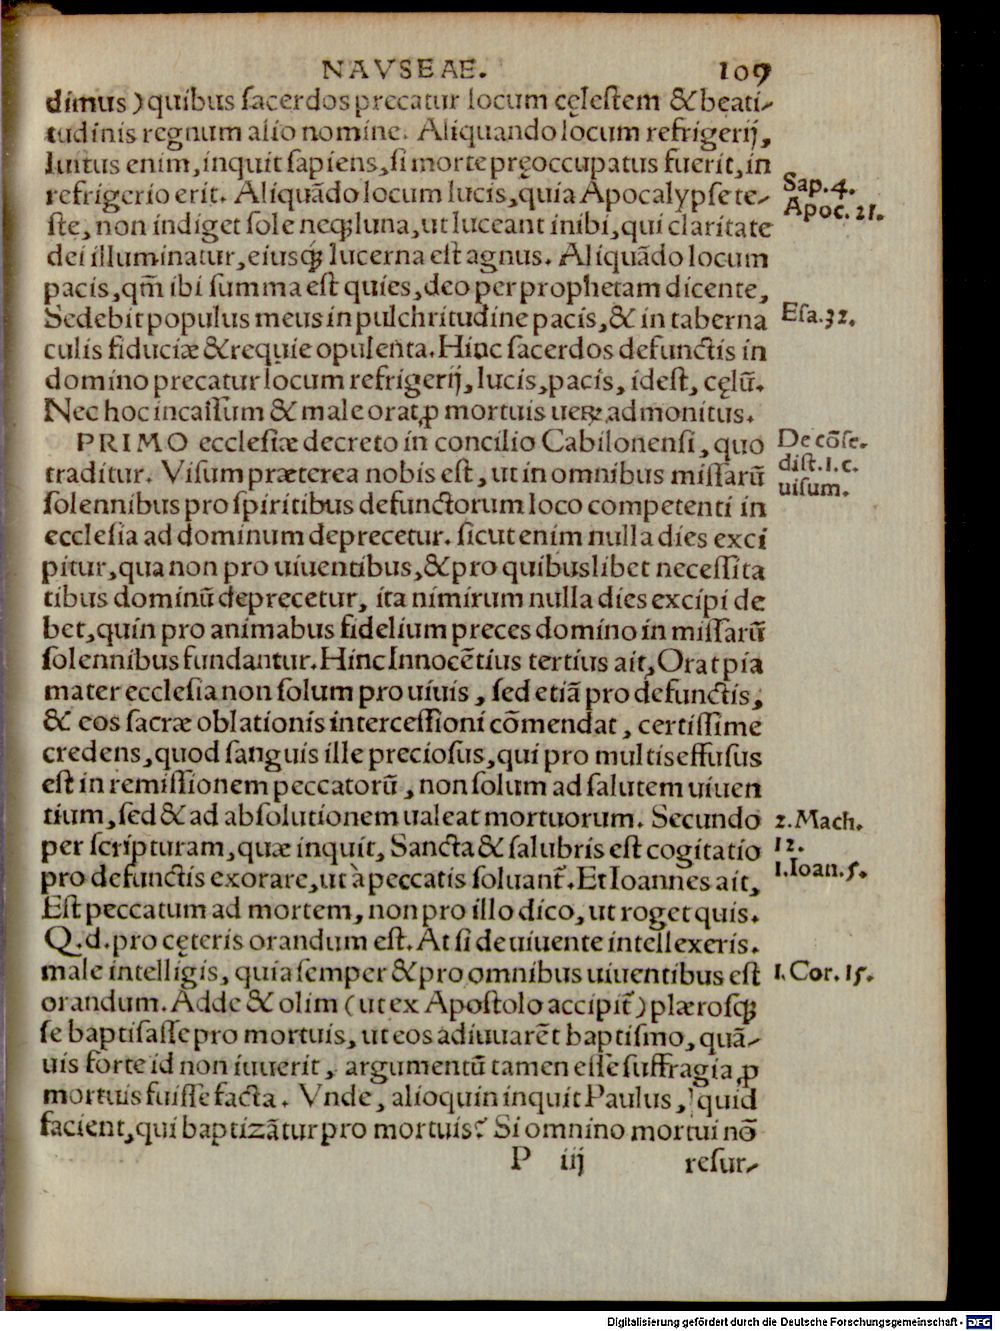 NAVSEAE. 109
dimus) quibus sacerdos precatur locum cęlestem & beati-
tudinis regnum alio nomine. Aliquando locum refrigerij,
Iustus enim, inquit sapiens, si morte pręoccupatus fuerit, in
refrigerio erit. Aliquãdo locum lucis, quia Apocalypse te-
Sap. 4.
Apoc. 21.
ste, non indiget sole neqꝫ luna, ut luceant inibi, qui claritate
dei illuminatur, eiusqꝫ lucerna est agnus. Aliquãdo locum
pacis, qm̃ ibi summa est quies, deo per prophetam dicente,
Sedebit populus meus in pulchritudine pacis, & in taberna
Esa. 32.
culis fiduciæ & requie opulenta. Hinc sacerdos defunctis in
domino precatur locum refrigerij, lucis, pacis, idest, cęlũ.
Nec hoc incassum & male orat, ꝓ mortuis ueꝝ admonitus.
PRIMO ecclesiæ decreto in concilio Cabilonensi, quo
De cõse.
dist. 1. c.
uisum.
traditur. Visum præterea nobis est, ut in omnibus missarũ
solennibus pro spiritibus defunctorum loco competenti in
ecclesia ad dominum deprecetur. sicut enim nulla dies exci
pitur, qua non pro uiuentibus, & pro quibuslibet necessita
tibus dominũ deprecetur, ita nimirum nulla dies excipi de
bet, quin pro animabus fidelium preces domino in missarũ
solennibus fundantur. Hinc Innocẽtius tertius ait, Orat pia
mater ecclesia non solum pro uiuis, sed etiã pro defunctis,
& eos sacræ oblationis intercessioni cõmendat, certissime
credens, quod sanguis ille preciosus, qui pro multis effusus
est in remissionem peccatorũ, non solum ad salutem uiuen
tium, sed & ad absolutionem ualeat mortuorum. Secundo
2. Mach.
12.
per scripturam, quæ inquit, Sancta & salubris est cogitatio
pro defunctis exorare, ut à peccatis soluant̃. Et Ioannes ait,
1. Ioan. 5.
Est peccatum ad mortem, non pro illo dico, ut roget quis.
Q. d. pro cęteris orandum est. At si de uiuente intellexeris.
male intelligis, quia semper & pro omnibus uiuentibus est
1. Cor. 15.
orandum. Adde & olim (ut ex Apostolo accipit̃) plærosqꝫ
se baptisasse pro mortuis, ut eos adiuuarẽt baptismo, quã-
uis forte id non iuuerit, argumentũ tamen esse suffragia, ꝓ
mortuis fuisse facta. Vnde, alioquin inquit Paulus, quid
facient, qui baptizãtur pro mortuis? Si omnino mortui nõ
P iij resur-
Digitalisierung gefördert durch die Deutsche Forschungsgemeinschaft - DFG